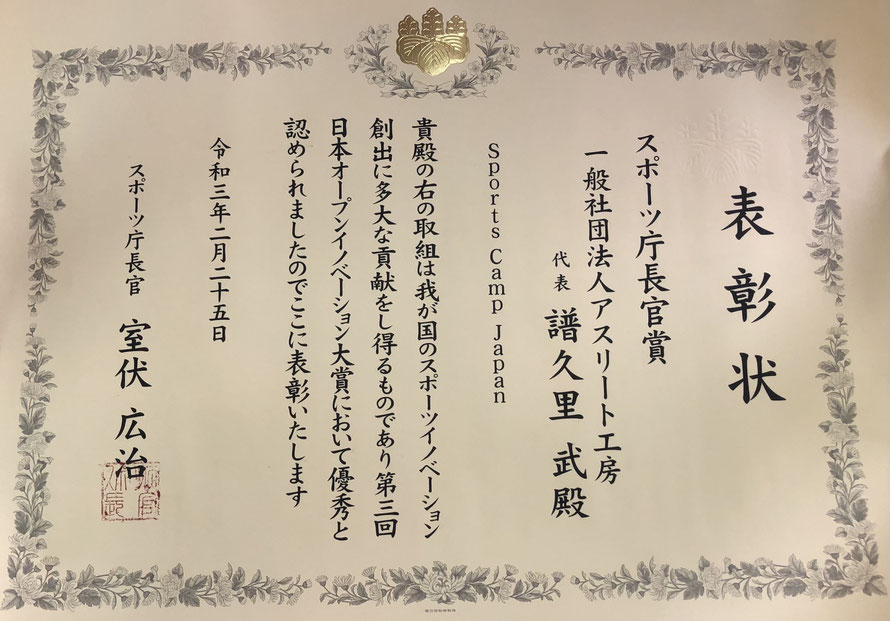 表彰状
スポーツ庁長官賞
一般社団法人アスリート工房
代表 譜久里 武殿
Sports Camp Japan
貴殿の右の取組は我が国のスポーツイノベーション
創出に多大な貢献をし得るものであり第三回
日本オープンイノベーション大賞において優秀と
認められましたのでここに表彰いたします
令和三年二月二十五日
スポーツ庁長官 室伏 広治